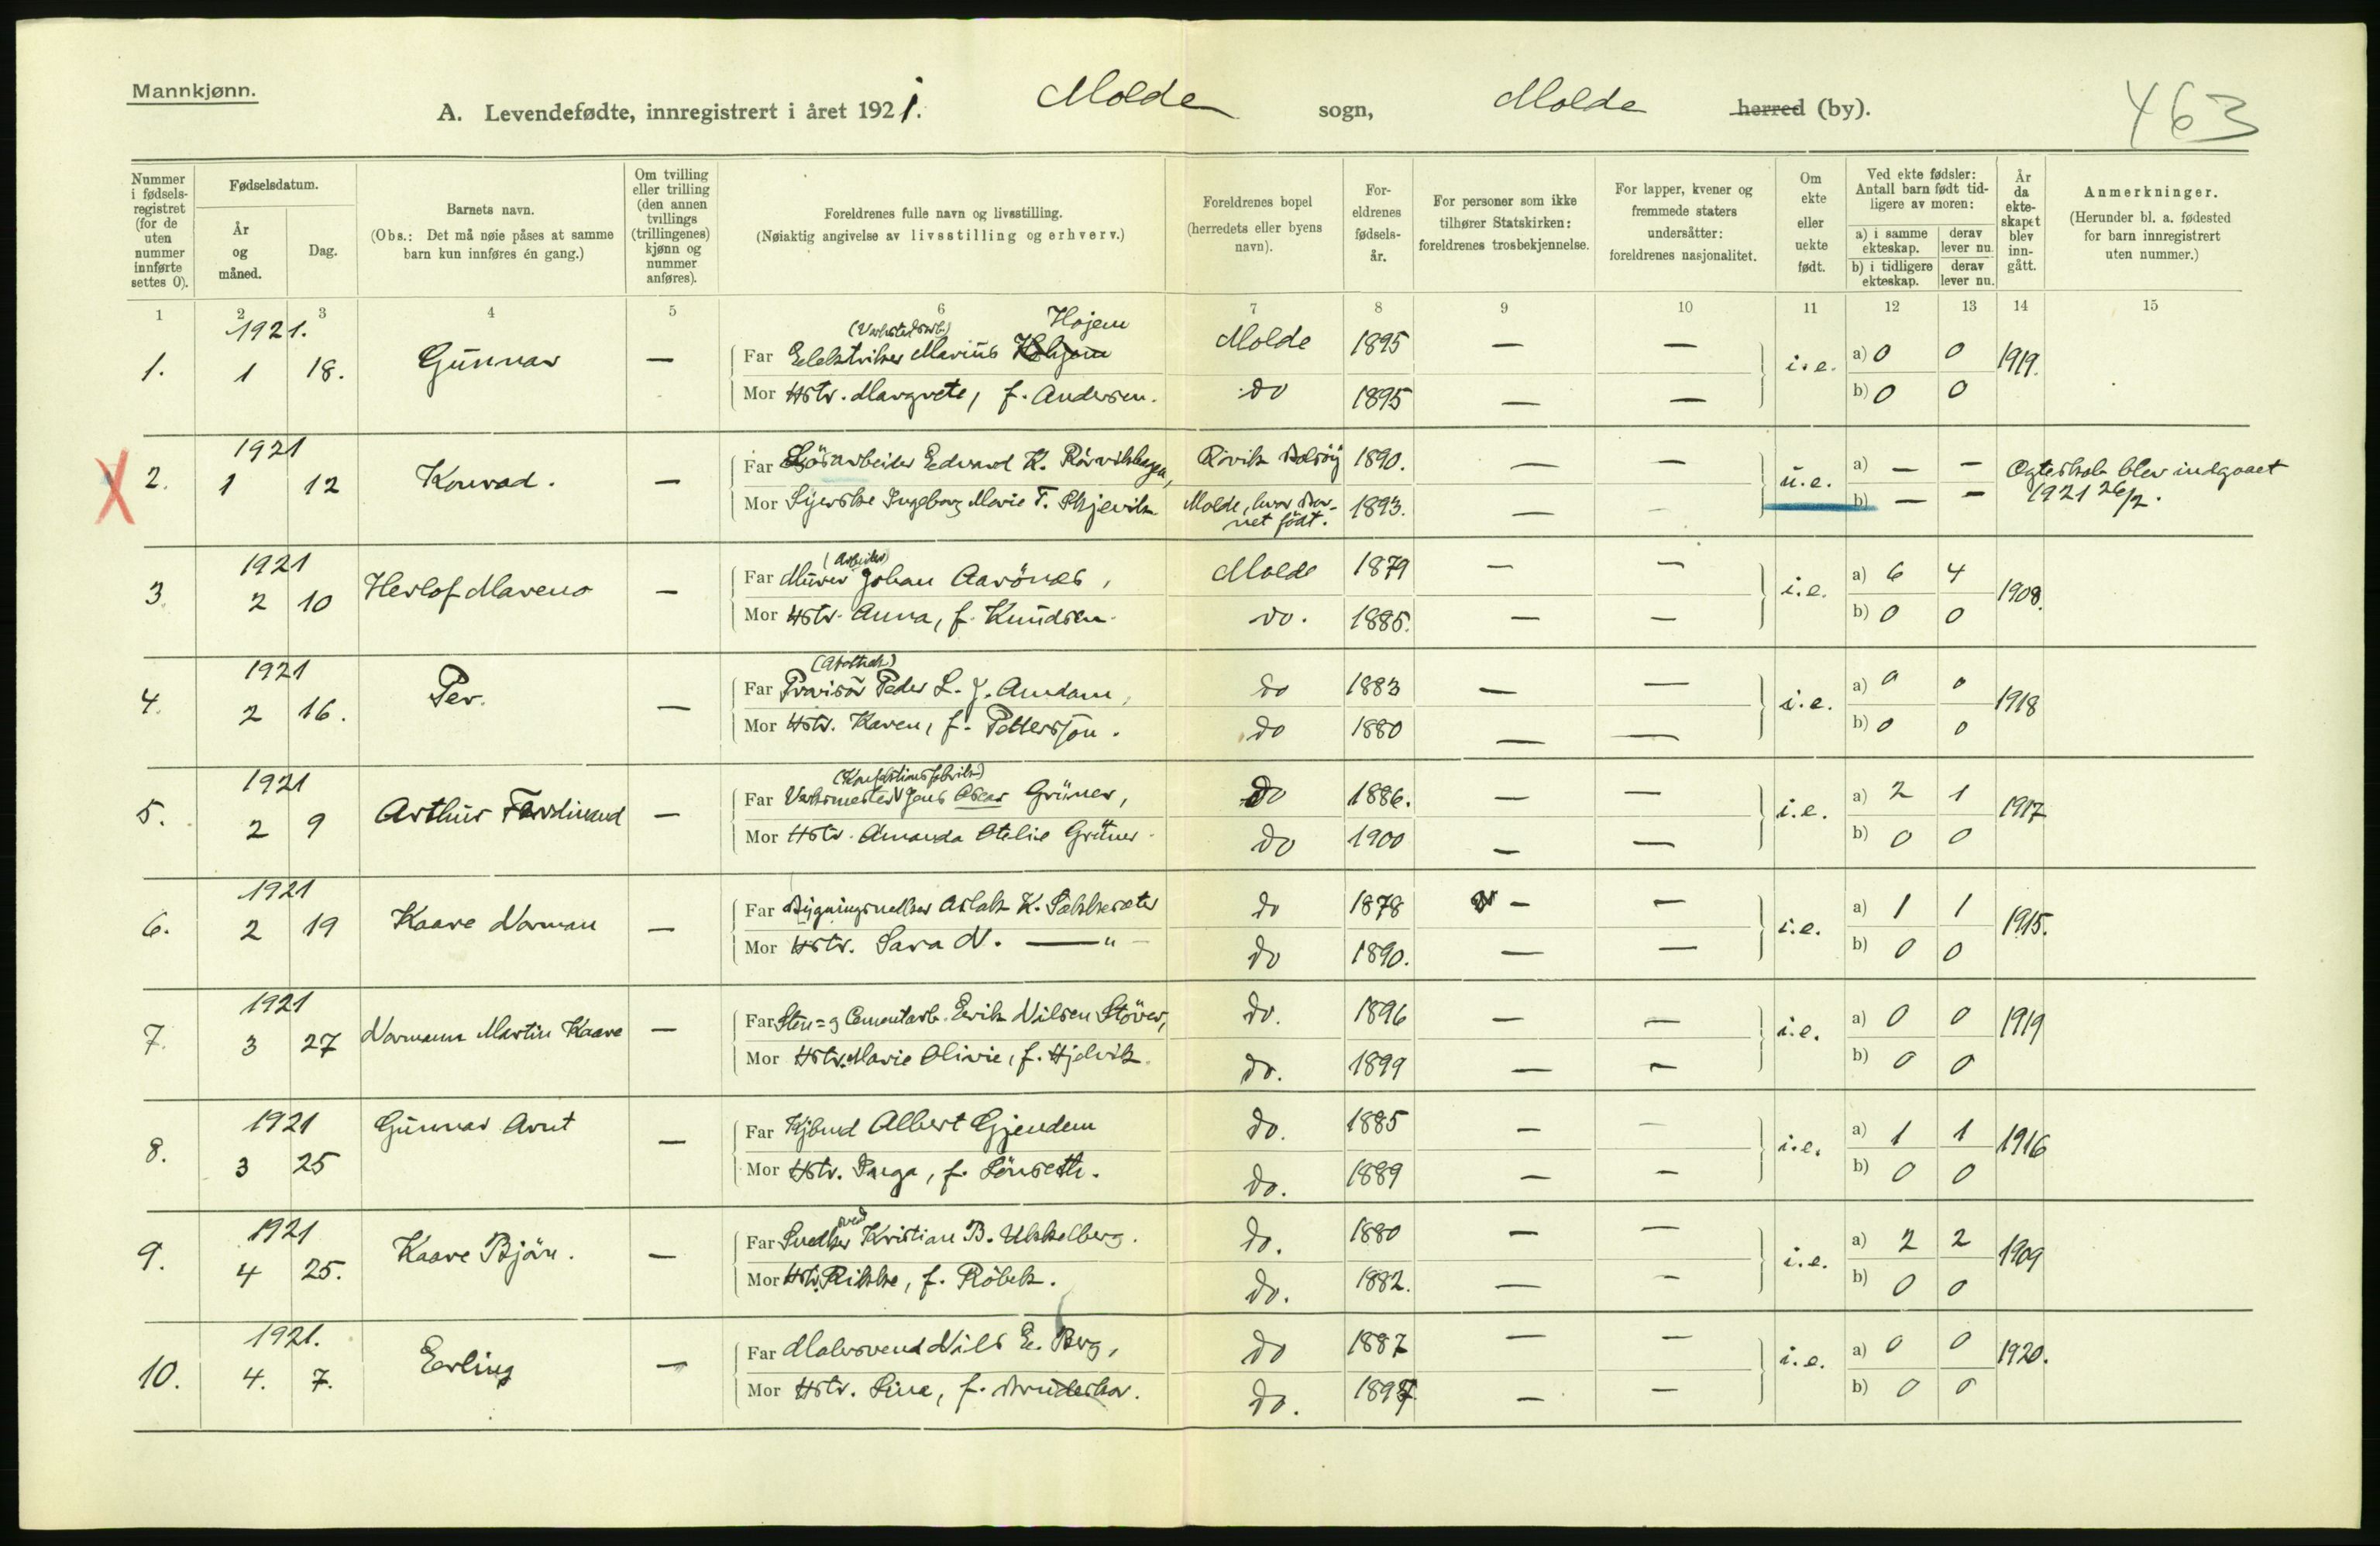 Mannkjønn.
A. Levendefødte, innregistrert i året 1921. Molde sogn, Molde herred (by).
463
Nummer i fødsels-registret (for de uten nummer innførte settes 0).
Fødselsdatum.
År og måned.
Dag.
Barnets navn.
(Obs.: Det må nøie påses at samme barn kun innføres én gang.)
Om tvilling eller trilling (den annen tvillings (trillingenes) kjønn og nummer anføres).
Foreldrenes fulle navn og livsstilling.
(Nøiaktig angivelse av livsstilling og erhverv.)
Foreldrenes bopel (herredets eller byens navn).
For-eldrenes fødsels-år.
For personer som ikke tilhører Statskirken: foreldrenes trosbekjennelse.
For lapper, kvener og fremmede staters undersåtter: foreldrenes nasjonalitet.
Om ekte eller uekte født.
Ved ekte fødsler: Antall barn født tid-ligere av moren:
a) i samme ekteskap. derav lever nu.
b) i tidligere ekteskap. derav lever nu.
År da ekte-skapet blev inn-gått.
Anmerkninger.
(Herunder bl. a. fødested for barn innregistrert uten nummer.)
1 2 3 4 5 6 7 8 9 10 11 12 13 14 15
1921. Hojem
1. 1 18. Gunnar — Far Elektriker Marius Molde 1895 — — i.e. a) 0 0 1919.
Mor Hstr. Margrete, f. Andersen. do 1895 — — b) 0 0
1921
X 2. 1 12 Konrad. — Far Edvard K. Rørvikhagen, Rivik Bolsöy 1890. — — u.e. a) — — Ogteskab blev indgaaet
Mor Syerske Ingeborg Marie T. Skjevik Molde, hvor bar-net födt. 1893. — - b) — — 1921 26/2.
1921 (Arbeider)
3. 2 10 Herlof Mareno — Far Murer Johan Aarönes, Molde 1879 — — i.e. a) 6 4 1908.
Mor Hstr. Anna, f. Knudsen. do. 1885. — — b) 0 0
1921 (Apothek)
4. 2 16. Per. — Far Provisor Peder L. J. Amdam, do 1883 — — i.e. a) 0 0 1918
Mor Hstr. Karen, f. Petterson. do 1880 — — b) 0 0
1921 (Konfektionsfabrik)
5. 2 9 Arthur Ferdinand — Far Verksmester Jens Oscar Grüner, do 1886. — — i.e. a) 2 1 1917
Mor Hstr. Amanda Otelie Grüner. do 1900 — — b) 0 0
1921
6. 2 19 Kaare Norman — Far Bygningssnekker Aslak K. Sækkesæter do 1878 — — i.e. a) 1 1 1915.
Mor Hstr. Sara N. — " — do 1890. — — b) 0 0
1921
7. 3 27 Normann Martin Kaare — Far Sten= og Cementarb. Erik Nilsen Stöver, do. 1896 — — i.e. a) 0 0 1919
Mor Hstr. Marie Olivie, f. Hjelvik. do. 1899 — — b) 0 0
1921
8. 3 25 Gunnar Arnt — Far Kjbmd Albert Gjendem do. 1885 — — i.e. a) 1 1 1916
Mor Hstr. Inga, f. Lönseth. do. 1889 — — b) 0 0
1921 svend
9. 4 25. Kaare Björn. — Far Snekker Kristian B. Ukkelberg. do. 1880 — — i.e. a) 2 2 1909
Mor Hstr. Rikke, f. Röbek. do. 1882. — — b) 0 0
1921.
10. 4. 7. Erling — Far Malersvend Nils E. Berg, do 1887 — — i.e. a) 0 0 1920.
Mor Hstr. Line, f. do. 1897 — — b) 0 0